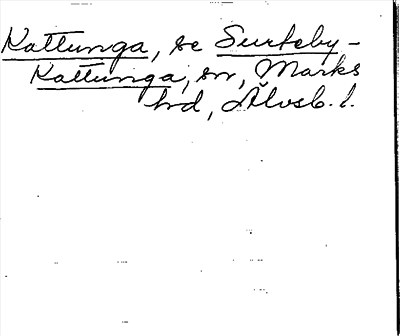 Kattunga, se Surteby-
Kattunga, sn, Marks
hd, Älvsb. l.